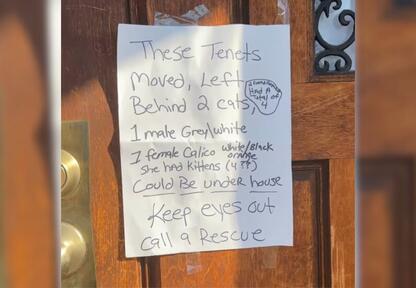 These Tenets
Moved, Left
Behind 2 cats,
Had A
Total of
4
1 male Grey/white
1 female Calico white/Black
orange
She had Kittens (4??)
Could Be under house
Keep eyes out
call a Rescue